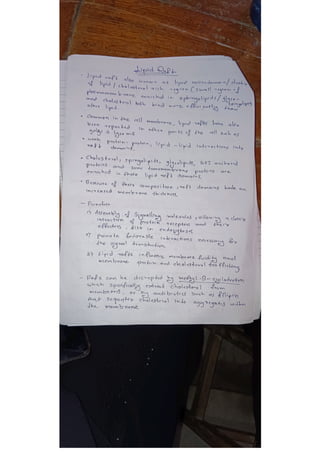 Lipid Raft
- Lipid raft also known as lipid microdomain / cluster
of lipid / cholesterol rich region (small region of
plasma membrane enriched in sphingolipids / glyco
and cholesterol both bind more efficiently than
other lipid.
- Common in the cell membrane, lipid rafts have also
been reported in other parts of the cell such as
golgi &
- protein-protein, lipid-lipid interactions into
raft domains.
- Cholesterol, sphingolipids, glycolipids, GPI anchored
proteins and some transmembrane proteins are
enriched in these lipid raft domains.
- Because of their composition, raft domains have an
increased membrane thickness.
- Function
1) Assembly of signalling molecules, allowing a closer
interaction of protein receptors and their
effectors, also in endocytosis
2) promote favorable interactions necessary for
the signal transduction
3) Lipid rafts influence membrane fluidity and
membrane protein and cholesterol trafficking
- Rafts can be disrupted by methyl-β-cyclodextrin
which specifically extract cholesterol from
membranes, or by antibiotics such as filipin
that sequester cholesterol into aggregates within
the membrane.